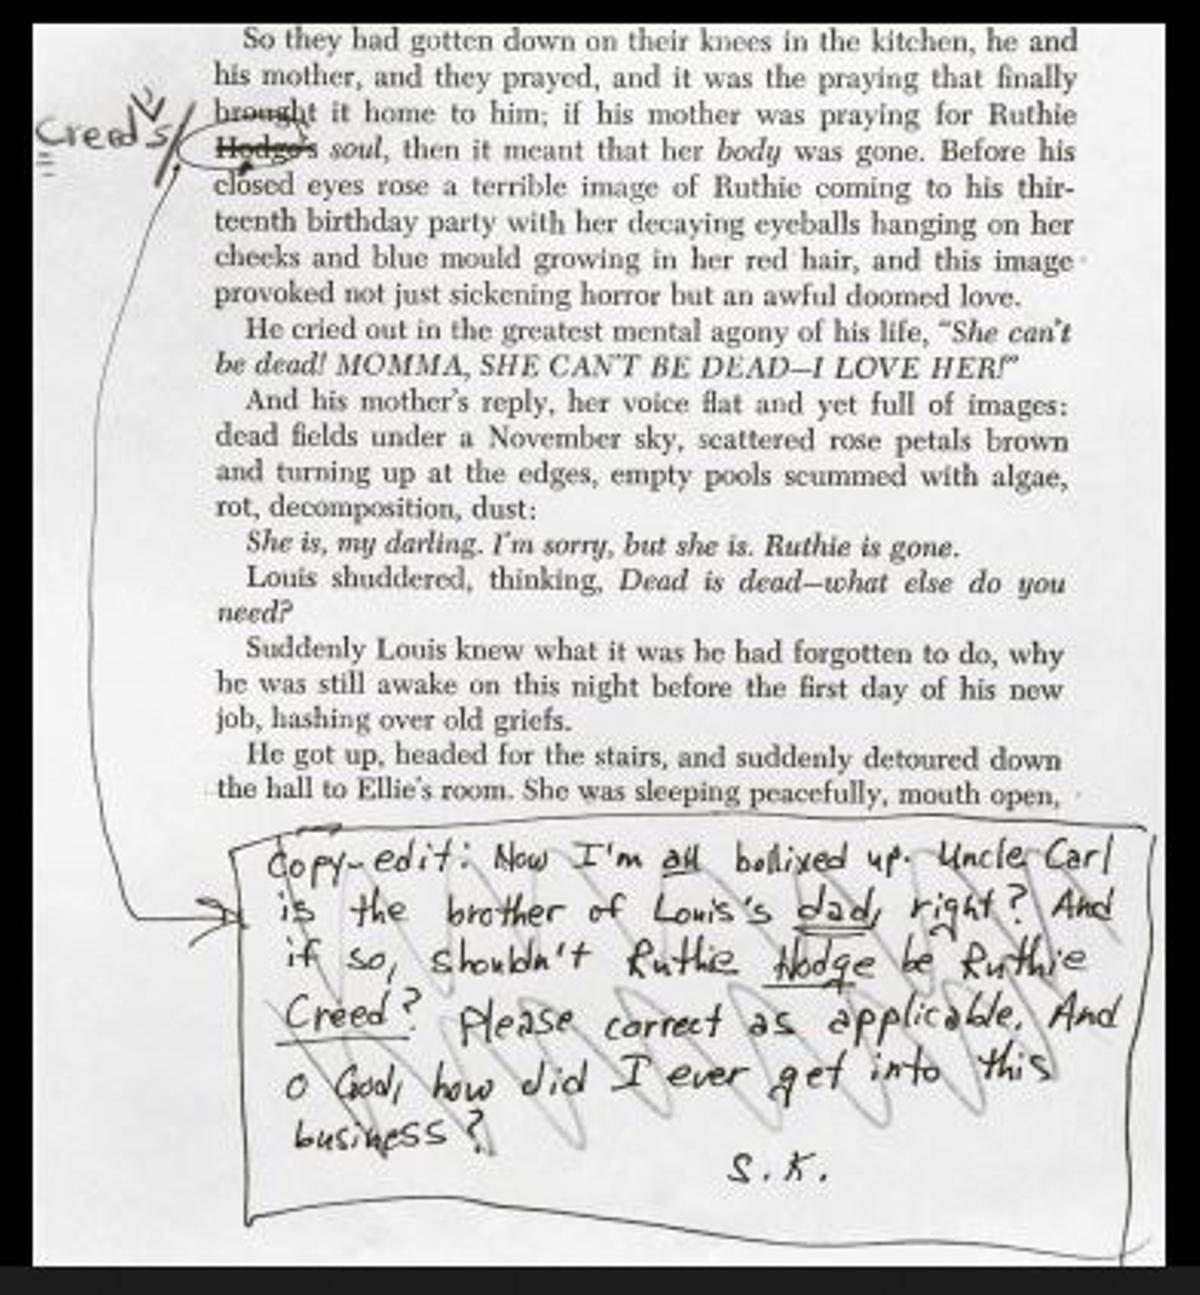 So they had gotten down on their knees in the kitchen, he and
his mother, and they prayed, and it was the praying that finally
brought it home to him; if his mother was praying for Ruthie
Creed's/
Hodge's soul, then it meant that her body was gone. Before his
closed eyes rose a terrible image of Ruthie coming to his thir-
teenth birthday party with her decaying eyeballs hanging on her
cheeks and blue mould growing in her red hair, and this image
provoked not just sickening horror but an awful doomed love.
He cried out in the greatest mental agony of his life, “She can't
be dead! MOMMA, SHE CAN'T BE DEAD—I LOVE HER!”
And his mother's reply, her voice flat and yet full of images:
dead fields under a November sky, scattered rose petals brown
and turning up at the edges, empty pools scummed with algae,
rot, decomposition, dust:
She is, my darling. I'm sorry, but she is. Ruthie is gone.
Louis shuddered, thinking, Dead is dead—what else do you
need?
Suddenly Louis knew what it was he had forgotten to do, why
he was still awake on this night before the first day of his new
job, hashing over old griefs.
He got up, headed for the stairs, and suddenly detoured down
the hall to Ellie's room. She was sleeping peacefully, mouth open,
Copy-edit: Now I'm all bollixed up. Uncle Carl
is the brother of Louis's dad, right? And
if so, shouldn't Ruthie Hodge be Ruthie
Creed? Please correct as applicable. And
o God, how did I ever get into this
business?
S.K.